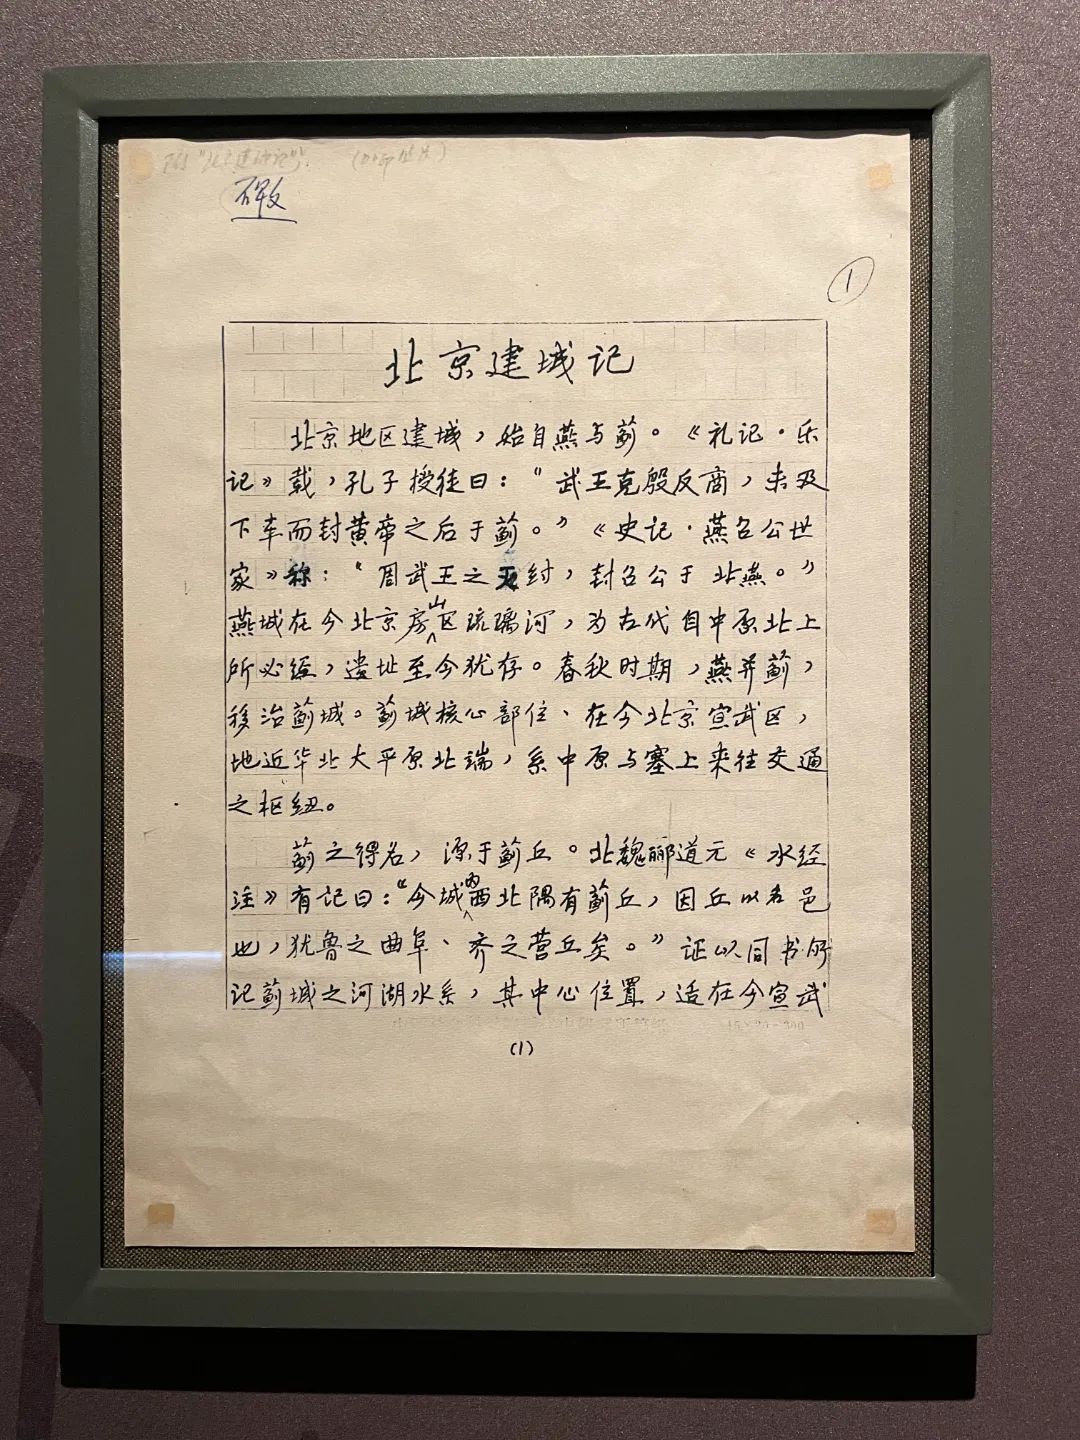 碑文
1
北京建城记
北京地区建城，始自燕与蓟。《礼记·乐
记》载，孔子授徒曰：“武王克殷反商，未及
下车而封黄帝之后于蓟。”《史记·燕召公世
家》称：“周武王之灭纣，封召公于北燕。”
燕城在今北京房山区琉璃河，为古代自中原北上
所必经，遗址至今犹存。春秋时期，燕并蓟，
移治蓟城。蓟城核心部位、在今北京宣武区，
地近华北大平原北端，系中原与塞上来往交通
之枢纽。
蓟之得名，源于蓟丘。北魏郦道元《水经
注》有记曰：“今城内西北隅有蓟丘，因丘以名邑
也，犹鲁之曲阜、齐之营丘矣。”证以同书所
记蓟城之河湖水系，其中心位置，适在今宣武
(1)